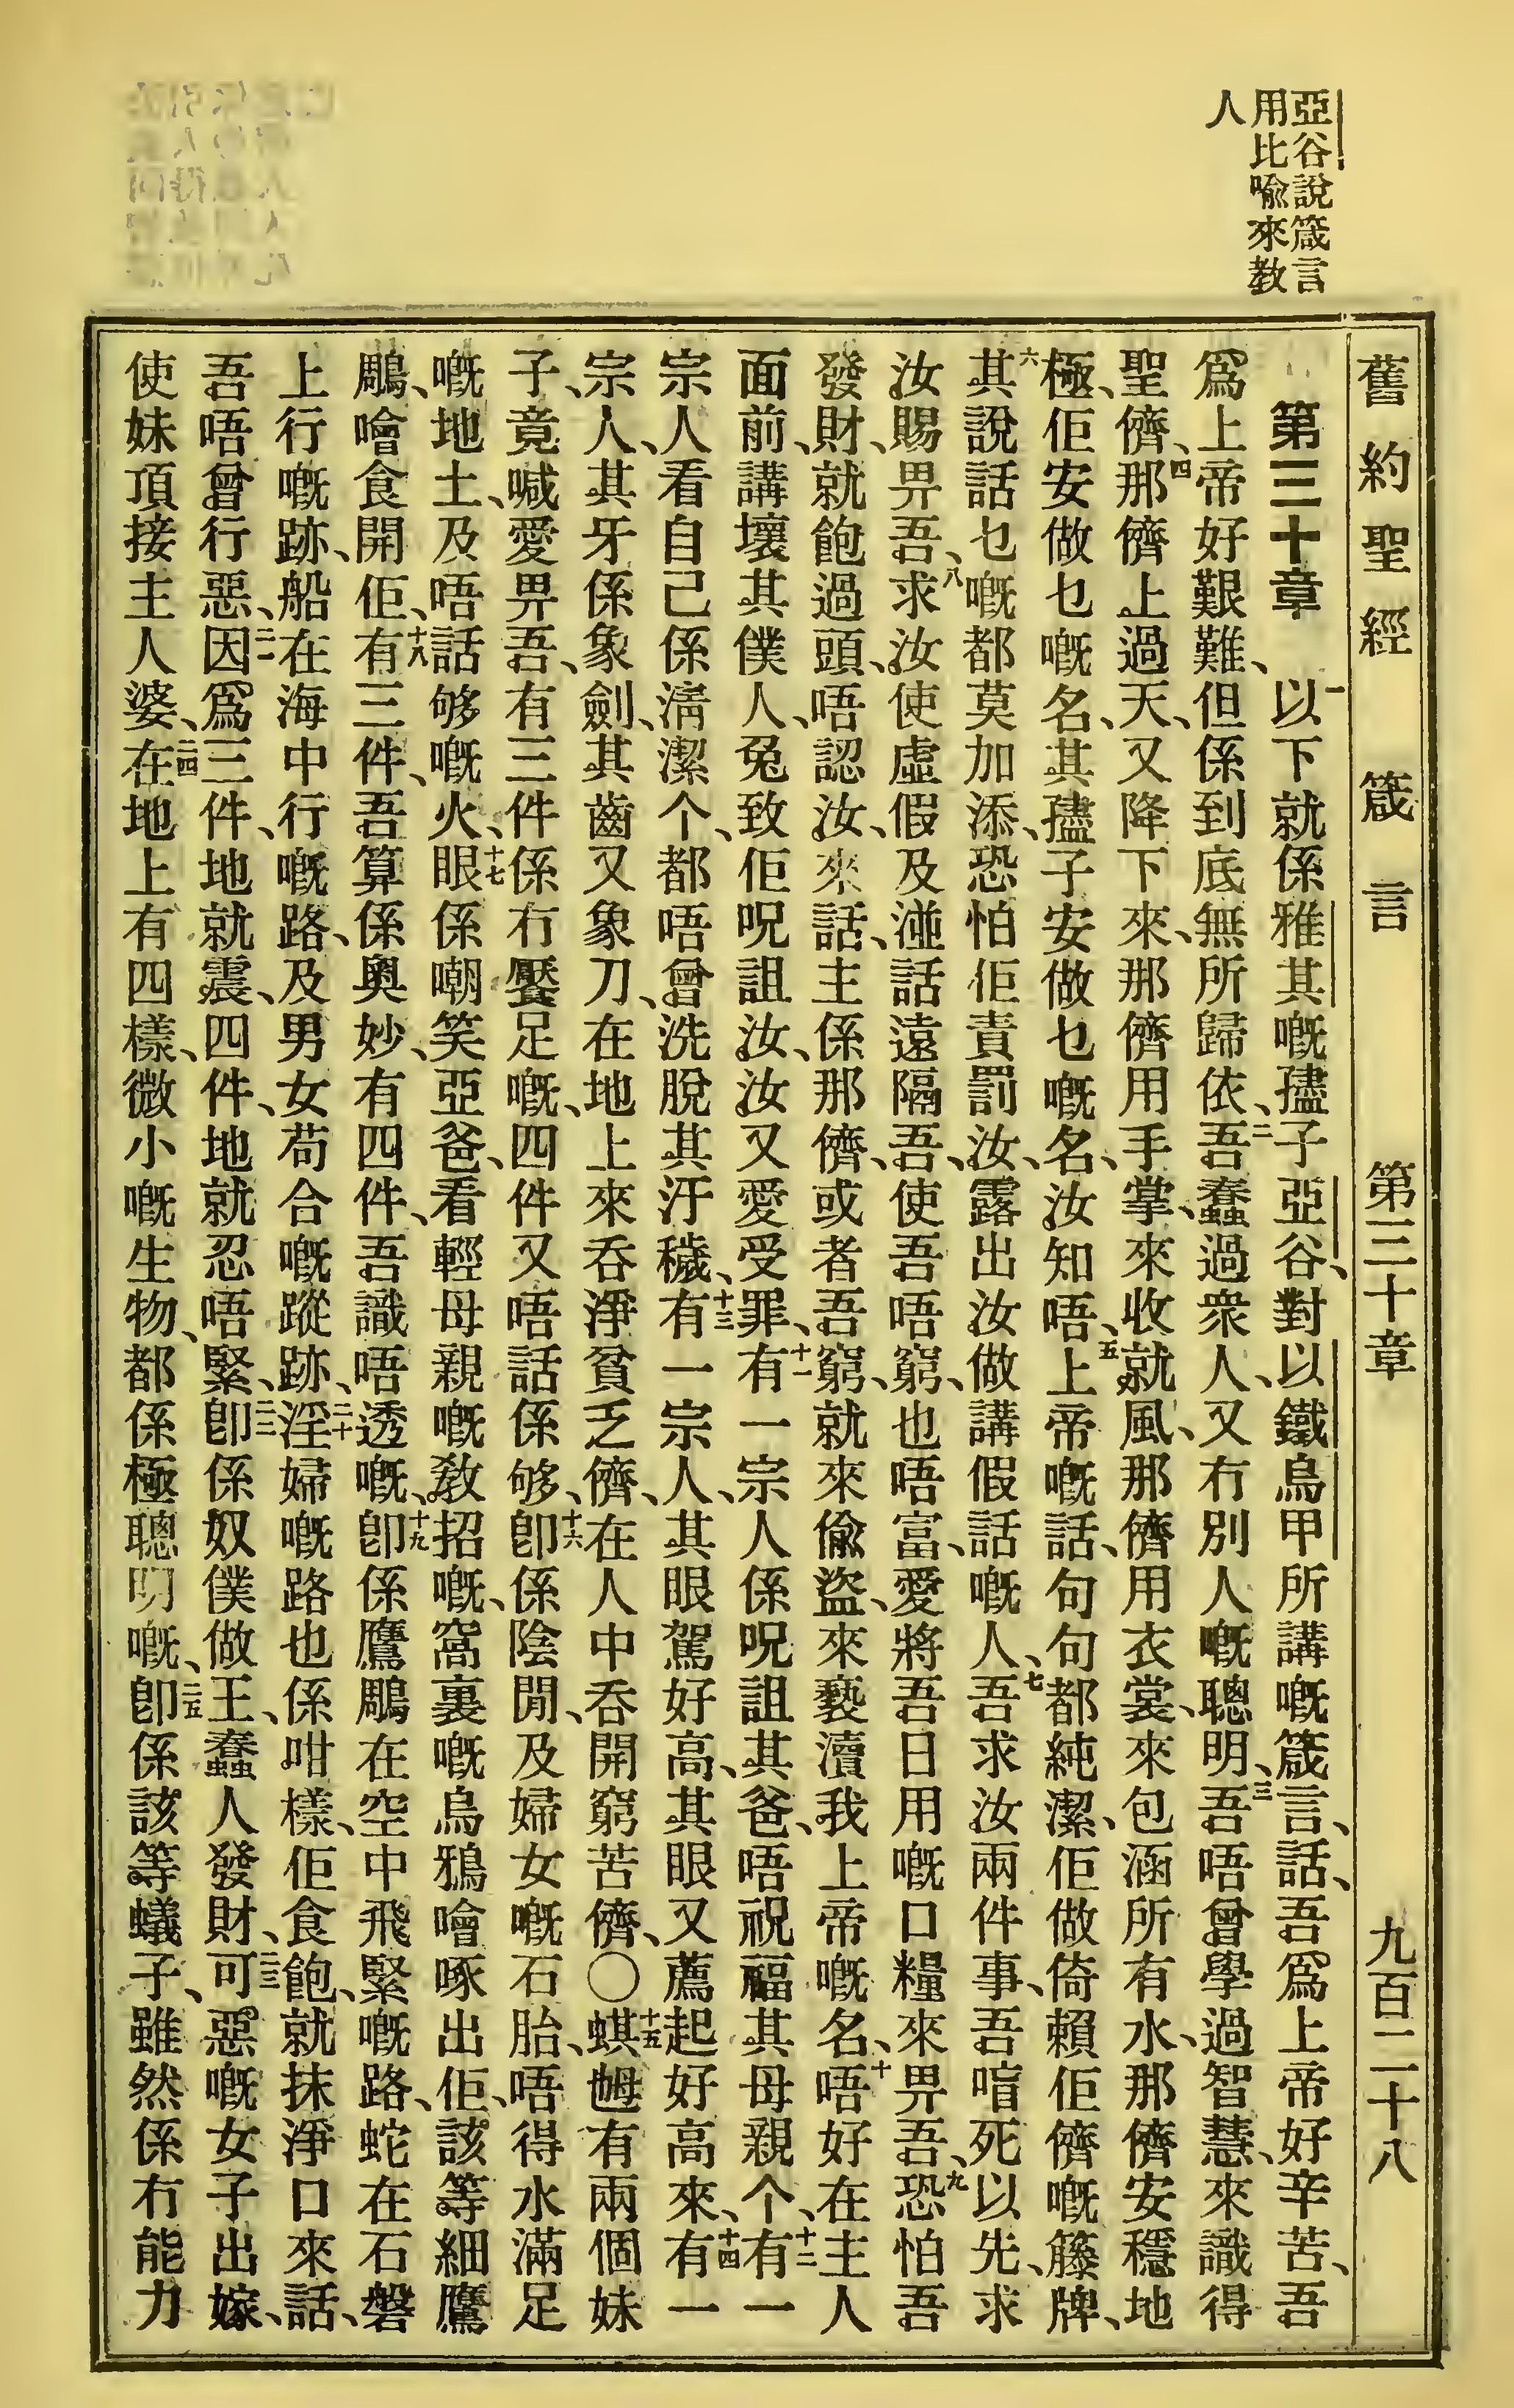 亞谷說箴言
用比喻來教
人
舊約聖經　箴言　第三十章　九百二十八
第三十章　一以下就係雅其嘅孻子亞谷、對以鐵烏甲所講嘅箴言、話、吾爲上帝好辛苦、吾
爲上帝好艱難、但係到底無所歸依、二吾蠢過衆人、又冇別人嘅聰明、三吾唔曾學過智慧、來識得
聖儕、四那儕上過天、又降下來、那儕用手掌、來收就風、那儕用衣裳、來包涵所有水、那儕安穩地
極、佢安做乜嘅名、其孻子安做乜嘅名、汝知唔、五上帝嘅話、句句都純潔、佢做倚賴佢儕嘅籐牌、
六其說話乜嘅都莫加添、恐怕佢責罰汝、露出汝做講假話嘅人、七吾求汝兩件事、吾喑死以先、求
汝賜畀吾、八求汝使虛假及湴話遠隔吾、使吾唔窮、也唔富、愛將吾日用嘅口糧來畀吾、九恐怕吾
發財、就飽過頭、唔認汝、來話、主係那儕、或者吾窮、就來偸盜、來褻瀆我上帝嘅名、十唔好在主人
面前、講壞其僕人、免致佢呪詛汝、汝又愛受罪、十一有一宗人係呪詛其爸、唔祝福其母親个、十二有一
宗人看自己係淸潔个、都唔曾洗脫其汙穢、十三有一宗人、其眼駕好高、其眼又薦起好高來、十四有一
宗人、其牙係象劍、其齒又象刀、在地上來吞淨貧乏儕、在人中吞開窮苦儕、〇十五蜞乸有兩個妹
子、竟喊愛畀吾、有三件係冇饜足嘅、四件又唔話係够、十六卽係陰間、及婦女嘅石胎、唔得水滿足
嘅地土、及唔話够嘅火、十七眼係嘲笑亞爸、看輕母親嘅敎招嘅、窩裏嘅烏鴉噲啄出佢、該等細鷹
鵰、噲食開佢、十八有三件、吾算係奧妙、有四件、吾識唔透嘅、十九卽係鷹鵰在空中飛緊嘅路、蛇在石磐
上行嘅跡、船在海中行嘅路、及男女苟合嘅蹤跡、二十淫婦嘅路也係咁樣、佢食飽、就抹淨口來話、
吾唔曾行惡、二一因爲三件、地就震、四件、地就忍唔緊、二二卽係奴僕做王、蠢人發財、二三可惡嘅女子出嫁、
使妹頂接主人婆、二四在地上有四樣、微小嘅生物、都係極聰明嘅、二五卽係該等蟻子、雖然係冇能力